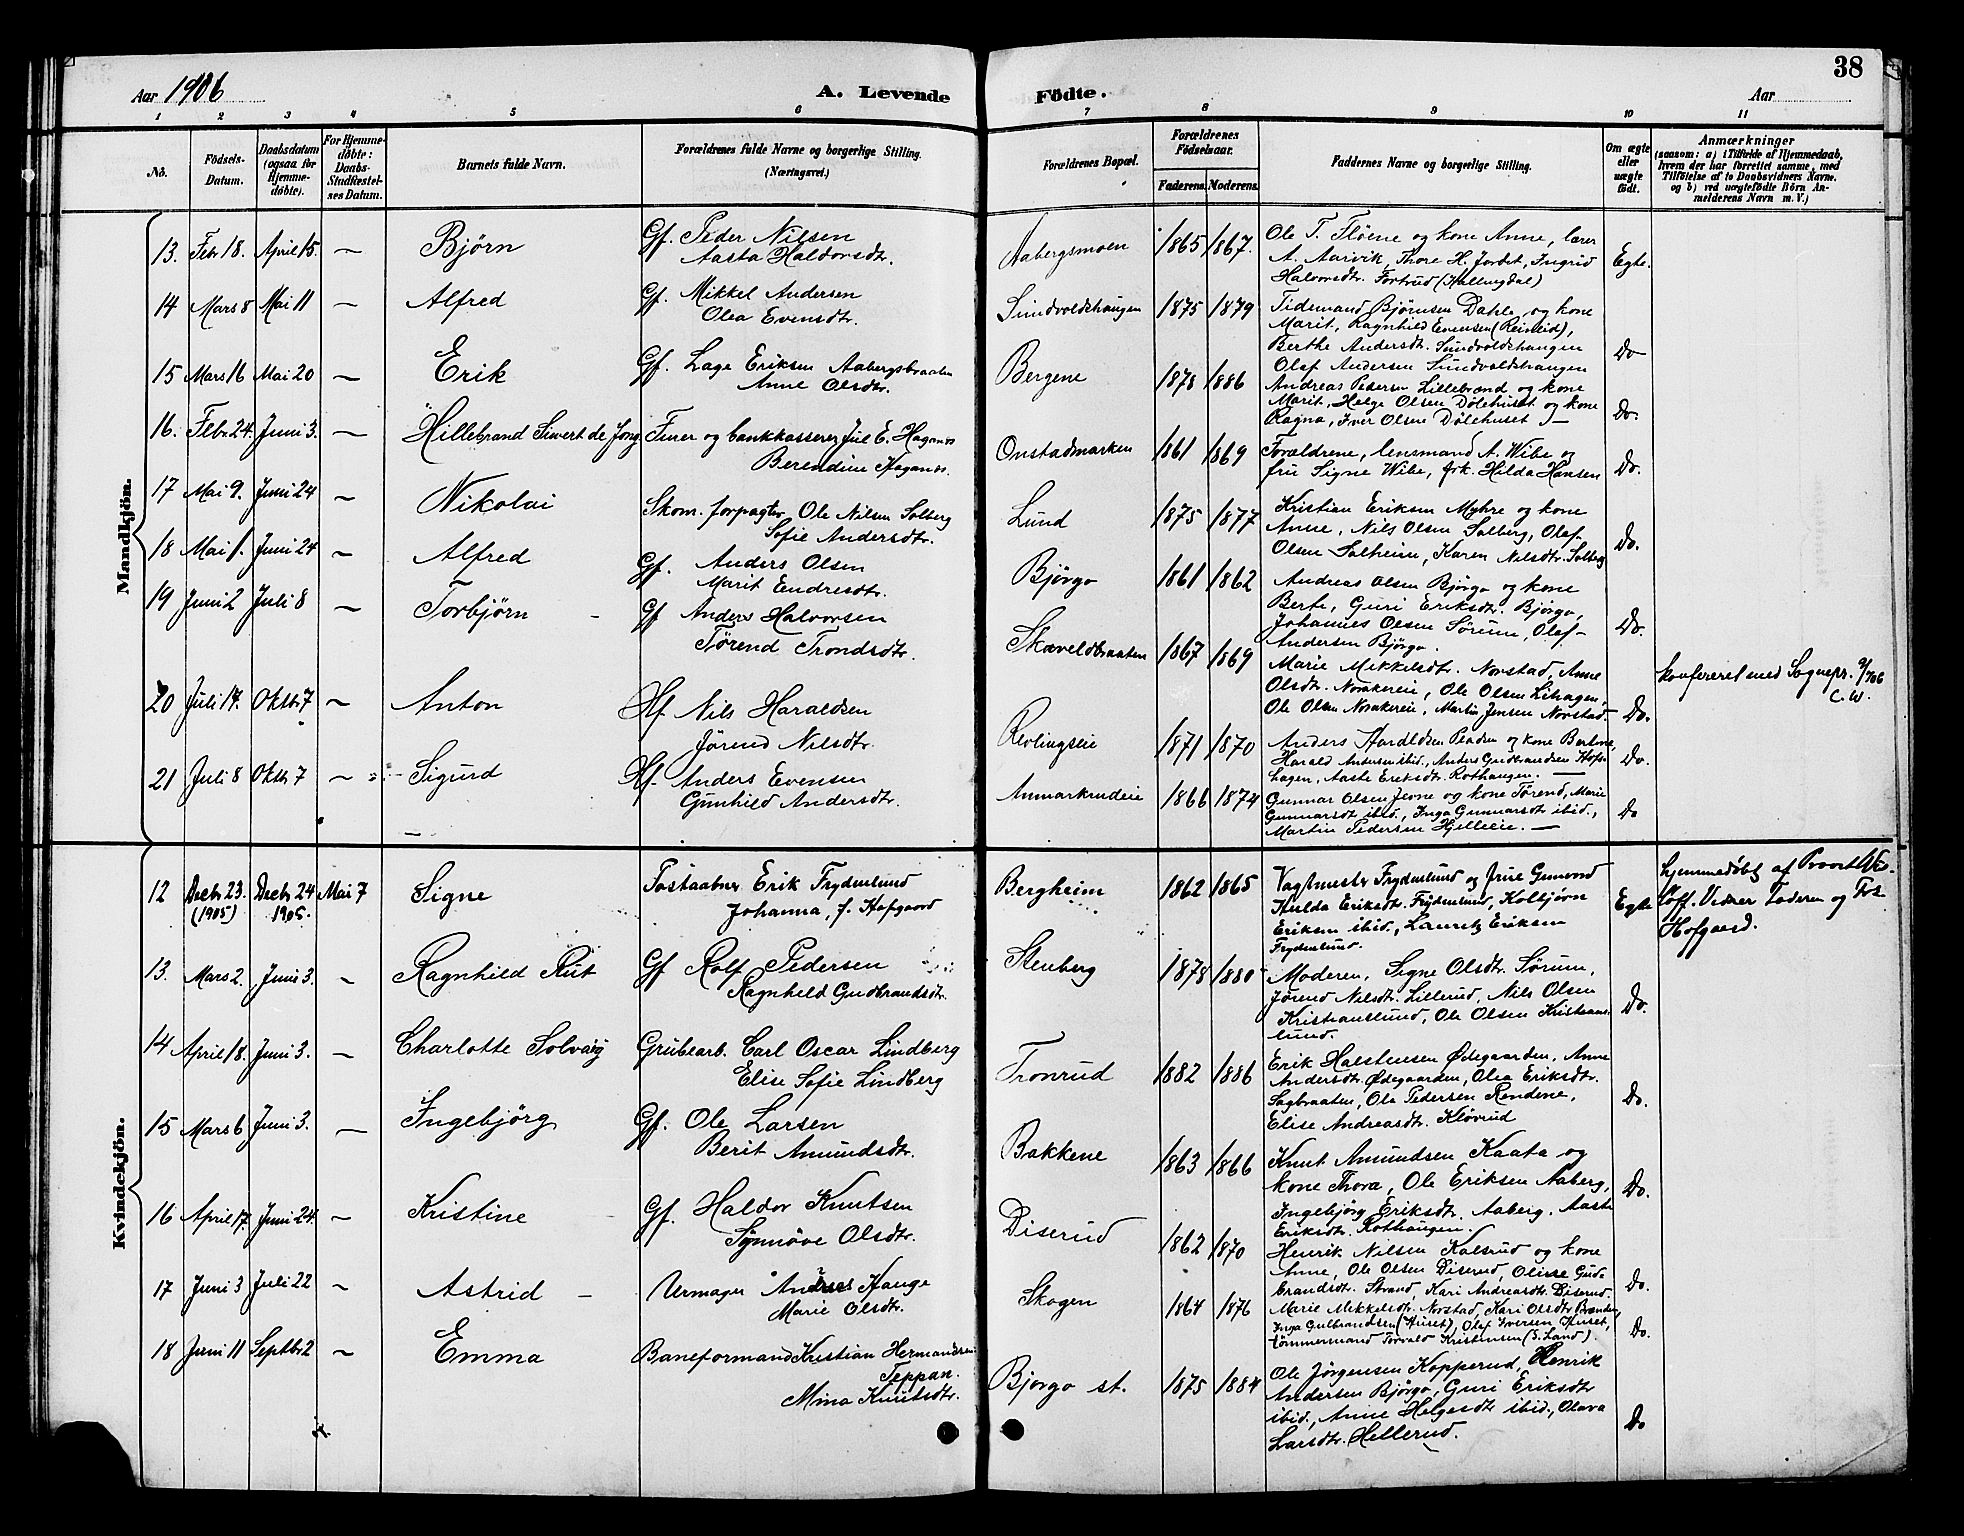 38
Aar 1906
A. Levende
Födte.
Aar
1 2 3 4 5 6 7 8 9 10 11
No.
Födsels-
Datum.
Daabsdatum
(ogsaa for
Hjemme-
döbte).
For Hjemme-
döbte:
Daabs-
Stadfæstel-
ses Datum.
Barnets fulde Navn.
Forældrenes fulde Navne og borgerlige Stilling.
(Næringsvei.)
Forældrenes Bopæl.
Forældrenes
Födselsaar.
Faderens. Moderens.
Faddernes Navne og borgerlige Stilling.
Om ægte
eller
uægte
födt.
Anmærkninger
(saasom: a) i Tilfælde af Hjemmedaab,
hvem der har forrettet samme, med
Tilföielse af to Daabsvidners Navne.
og b) ved uægtefödte Börn An-
melderens Navn m. V.)
Mandkjön.
13. Febr 18. April 15. — Bjørn
Gf. Peder Nilsen
Aasta Haldorsdt.
Aabergsmoen 1865 1867.
Ole T. Fløene og kone Anne, lærer
A. Aarvik, Thore H. Jordet, Ingrid
Halvorsdt. Fortrud (Hallingdal)
Egte.
14 Mars 8 Mai 11 — Alfred
Gf. Mikkel Andersen
Olea Evensdtr.
Sundvoldshaugen 1875 1879
Tidemand Bjørnsen Dahle, og kone
Marit, Ragnhild Evensen (Reineid),
Berthe Andersdt. Sundvoldshaugen
Olaf Andersen Sundvoldshaugen
Do
15 Mars 16 Mai 20 — Erik
Gf. Lage Eriksen Aabergsbraaten
Anne Olsdtr.
Bergene 1878 1886
Andreas Pedersen Lillebrand og kone
Marit, Helge Olsen Dølehuset og kone
Ragna, Iver Olsen Dølehuset —
Do.
16. Febr. 24. Juni 3. — Hillebrand Siwert de Jong
Timer og bankkasserer Jul E. Haganæs
Berendine Haganæs.
Onstadmarken 1861 1869
Forældrene, lensmand A. Wibe og
fru Signe Wibe, frk. Hilda Hansen
Do.
17 Mai 9. Juni 24 — Nikolai
Skom. forpagter Ole Nilsen Solberg
Sofie Andersdtr.
Lund 1875 1877
Kristian Eriksen Myhre og kone
Anne, Nils Olsen Solberg, Olaf
Olsen Solheim, Karen Nilsdtr. Solberg
Do.
18 Mai 1. Juni 24 — Alfred
Gf. Anders Olsen
Marit Endresdtr.
Bjørgo 1861 1862
Andreas Olsen Bjørgo og kone
Berte, Guri Eriksdtr. Bjørgo,
Johannes Olsen Sørum, Olaf
Andersen Bjørgo.
Do.
19 Juni 2 Juli 8 — Torbjørn
Gf Anders Halvorsen
Tørend Trondsdtr.
Skaveldbraaten 1867 1869
Marie Mikkelsdtr. Norstad, Anne
Olsdt. Norakereie, Ole Olsen Lihagen,
Ole Olsen Norakereie, Martin Jensen Norstad.
Do.
Konfereret med Sognepr. 9/7 06
C. W.
20 Juli 14. Oktbr 7 — Anton
Hf Nils Haraldsen
Jørend Nilsdtr.
Revlingseie 1871 1870
Anders Hardldsen Pladsen og kone Bertine,
Harald Andersen ibid, Anders Gudbrandsen Hofs-
hagen, Aaste Eriksdt. Rothaugen. —
Do.
21 Juli 8 Oktbr 7 — Sigurd
Hf. Anders Evensen
Gunhild Andersdtr.
Anmarkrudeie 1866 1874
Gunnar Olsen Jevne og kone Tørend, Marie
Gunnarsdt ibid., Inga Gunnarsdt ibid.,
Martin Pedersen Hjelleeie. —
Do
Kvindekjön.
12 Decbr 23. (1905) Decbr 24 1905. Mai 7 Signe
Postaabner Erik Frydenlund
Johanna, f. Hofgaard
Bergheim 1862 1865
Vagtmestr Frydenlund og frue Gunvord
Hulda Eriksdtr. Frydenlund, Kolbjørn
Eriksen ibid., Lauretz Eriksen
Frydenlund.
Egte
Hjemmedøbt af Provst
Vidner Faderen og
Hofgaard.
13. Mars 2. Juni 3. — Ragnhild Rut
Gf Rolf Pedersen
Ragnhild Gudbrandsdtr.
Stenberg 1878 1880
Moderen, Signe Olsdtr. Sørum,
Jørend Nilsdtr. Lillerud, Nils Olsen
Kristianslund, Ole Olsen Kristians
lund.
Do.
14 April 18. Juni 3. — Charlotte Solvaig
Grubearb. Carl Oscar Lindberg
Elise Sofie Lindberg
Tronrud 1882 1886
Erik Halstensen Ødegaarden, Anne
Andersdtr. Ødegaarden, Olea Eriksdtr.
Sagbraaten, Ole Pedersen Rendene,
Elise Andreasdt. Kløvrud
Do.
15 Mars 6 Juni 3. — Ingebjörg
Gf. Ole Larsen
Berit Amundsdtr.
Bakkene 1863 1866
Knut Amundsen Kaata og
kone Thora, Ole Eriksen Aaberg,
Ingebjörg Eriksdtr. Aaberg, Aaste
Eriksdtr. Rothaugen.
Do.
16 April 17. Juni 24. — Kristine
Gf. Haldor Knutsen
Synnøve Olsdtr.
Diserud 1862 1870
Henrik Nilsen Kalsrud og kone
Anne, Ole Olsen Diserud, Oline Gud-
brandsdtr. Strand, Kari Andreasdtr. Diserud
Do.
17 Juni 3 Juli 22 — Astrid
Urmager Andreas Hauge
Marie Olsdtr.
Skogen 1864 1876
Marie Mikkelsdtr. Norstad, Kari Olsdtr Braaten,
Inga Gulbrandsen (Huset), Olaf Iversen Huset,
tømmermand Torvald Kristensen (S. Land).
Do.
18 Juni 11 Septbr 2 — Emma
Baneformand Kristian Hermandsen
Teppan.
Mina Knutsdtr.
Bjørgo st. 1875 1884
Ole Jørgensen Kopperud, Henrik
Andersen Bjørgo, Guri Eriksdtr
ibid., Anne Helgesdtr ibid., Olava
Larsdtr. Hellerud.
Do